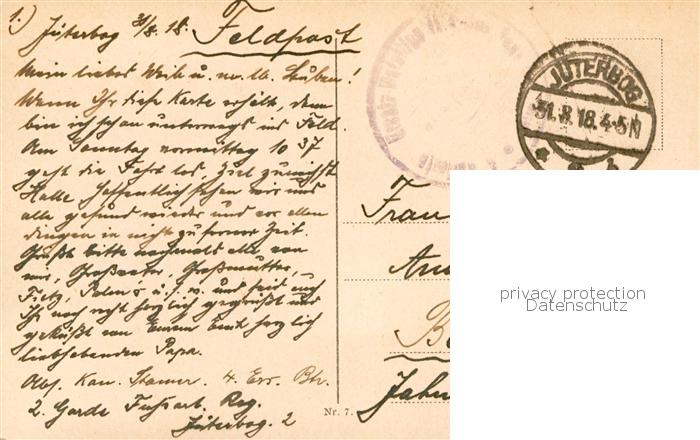 1.) Jüterbog 31/8. 18. Feldpost
Mein liebes Weib u. m. lb. Buben!
Wenn Ihr diese Karte erhält, dann
bin ich schon unterwegs ins Feld.
Am Sonntag vormittag 10 37
geht die Fahrt los, Ziel zunächst
Halle. Hoffentlich sehen wir uns
alle gesund wieder und vor allen
dingen in nicht zu ferner Zeit.
Grüßt bitte nochmals alle von
mir, Großvater, Großmutter,
Fietz, u.s.w. und seid auch
Ihr noch recht herzlich gegrüßt und
geküßt von Eurem Euch herzlich
liebhabenden Papa.
Abs. Kan. 4. Ers. Btr.
2. Garde Fussart. Reg.
Jüterbog. 2
Nr. 7.
JÜTERBOG
31.8.18.4-5N
Frau
privacy protection
Datenschutz